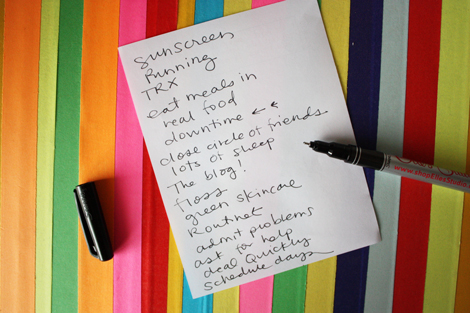 sunscreen
Running
TRX
eat meals in
real food
downtime ← ←
close circle of friends
lots of sleep
The blog!
floss
green skincare
Routine
admit problems
ask for help
deal Quickly
schedule days